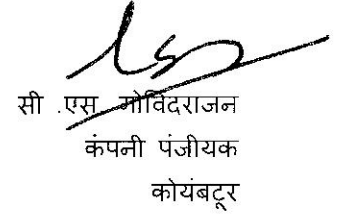 सी .एस. गोविंदराजन
कंपनी पंजीयक
कोयंबटूर